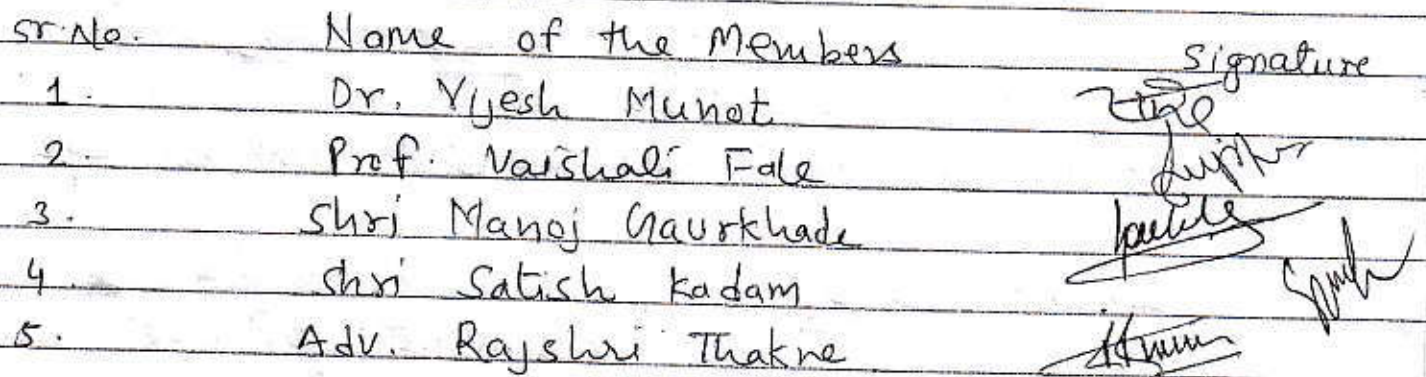 Sr. No. Name of the Members Signature
1. Dr. Vijesh Munot
2. Prof. Vaishali Fale
3. Shri Manoj Gaurkhade
4 Shri Satish Kadam
5. Adv. Rajshri Thakre